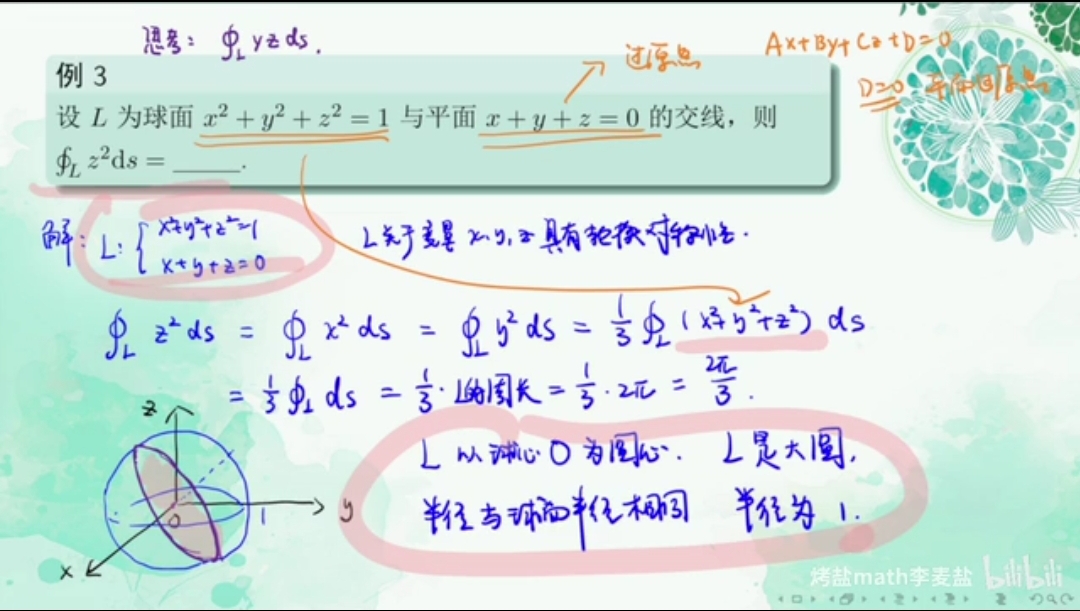 思考: ∮_L yzds.
过原点
Ax+By+Cz+D=0
D=0 平面过原点
例 3
设 L 为球面 x² + y² + z² = 1 与平面 x + y + z = 0 的交线，则
∮_L z²ds = ______.
解: L: { x²+y²+z²=1
x+y+z=0
L关于变量 x, y, z 具有轮换对称性.
∮_L z² ds = ∮_L x² ds = ∮_L y² ds = 1/3 ∮_L (x²+y²+z²) ds
= 1/3 ∮_L ds = 1/3 · L的周长 = 1/3 · 2π = 2π/3.
L 以球心 O 为圆心. L 是大圆,
半径与球面半径相同 半径为 1.
z
O
1
y
x
烤盐math李麦盐 bilibili